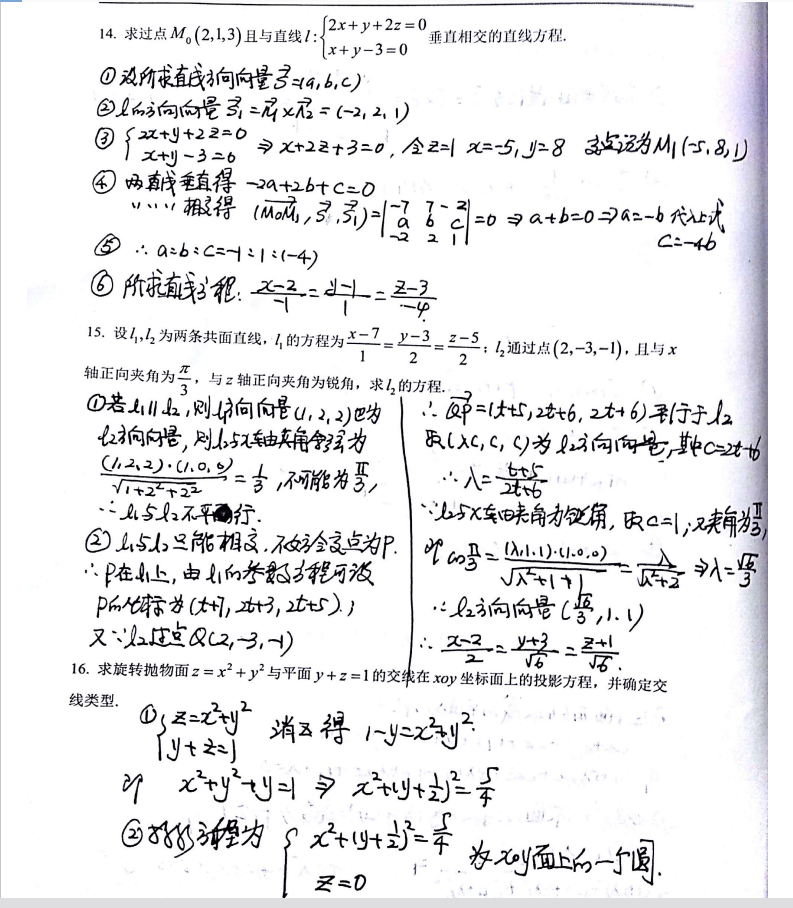 14. 求过点 M₀(2,1,3) 且与直线 l: { 2x+y+2z=0 垂直相交的直线方程.
x+y-3=0
① 设所求直线方向向量 S⃗=(a,b,c)
② l的方向向量 S⃗₁=n⃗₁×n⃗₂=(-2,2,1)
③ { 2x+y+2z=0 ⇒ x+2z+3=0, 令z=1 x=-5, y=8 交点设为M₁(-5,8,1)
x+y-3=0
④ 两直线垂直得 -2a+2b+c=0
〃〃〃〃 相交得 (M₀M₁, S⃗, S⃗₁)=|-7 7 -2; a b c; -2 2 1|=0 ⇒ a+b=0 ⇒ a=-b 代入上式
c=-4b
⑤ ∴ a:b:c=-1:1:(-4)
⑥ 所求直线方程: (x-2)/-1=(y-1)/1=(z-3)/-4
15. 设 l₁,l₂ 为两条共面直线, l₁ 的方程为 (x-7)/1=(y-3)/2=(z-5)/2; l₂ 通过点 (2,-3,-1), 且与 x
轴正向夹角为 π/3, 与 z 轴正向夹角为锐角, 求 l₂ 的方程.
① 若l₁∥l₂, 则l₁方向向量(1,2,2)也为
l₂方向向量, 则l₂与x轴夹角余弦为
(1,2,2)·(1,0,0)/√(1+2²+2²)=1/3, 不可能为π/3,
∴ l₁与l₂不平行.
② l₁与l₂只能相交, 不妨令交点为P.
∴P在l₁上, 由l₁的参数方程可设
P的坐标为 (t+7, 2t+3, 2t+5).;
又∵l₂过点Q(2,-3,-1)
∴ QP=(t+5, 2t+6, 2t+6) 平行于l₂
取(λc, c, c)为l₂方向向量, 其中c=2t+6
∴λ=(t+5)/(2t+6)
∵l₂与z轴夹角为锐角, 取c=1; 又夹角为π/3,
即cosπ/3=(λ,1,1)·(1,0,0)/√(λ²+1+1)=λ/√(λ²+2) ⇒ λ=√6/3
∴l₂方向向量(√6/3, 1, 1)
∴ (x-2)/2=(y+3)/√6=(z+1)/√6.
16. 求旋转抛物面 z=x²+y² 与平面 y+z=1 的交线在 xoy 坐标面上的投影方程, 并确定交
线类型.
① { z=x²+y² 消z得 1-y=x²+y².
y+z=1
即 x²+y²+y=1 ⇒ x²+(y+1/2)²=5/4
② 投影方程为 { x²+(y+1/2)²=5/4 为xoy面上的一个圆.
z=0